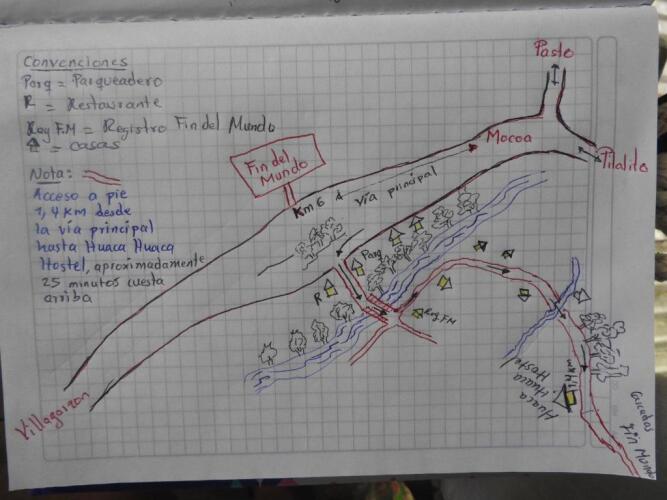 Convenciones
Parq = Parqueadero
R = Restaurante
Reg F.M = Registro Fin del Mundo
= casas
Nota:
Acceso a pie
1,4 Km desde
la vía principal
hasta Huaca Huaca
Hostel, aproximadamente
25 minutos cuesta
arriba
Pasto
Mocoa
Titalito
Fin del
Mundo
Km 6
vía principal
Parq
R
Reg F.M
1,4 Km
Huaca
Huaca
Hostel
Cascadas
Fin Mundo
Villagarzon